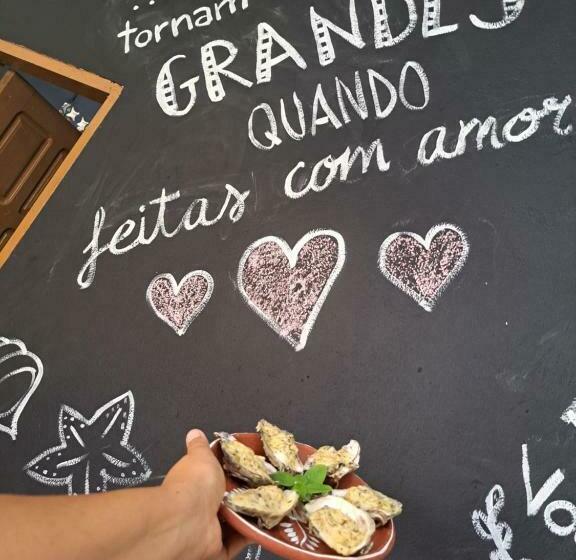 tornam
GRANDES
QUANDO
feitas com amor
Vo